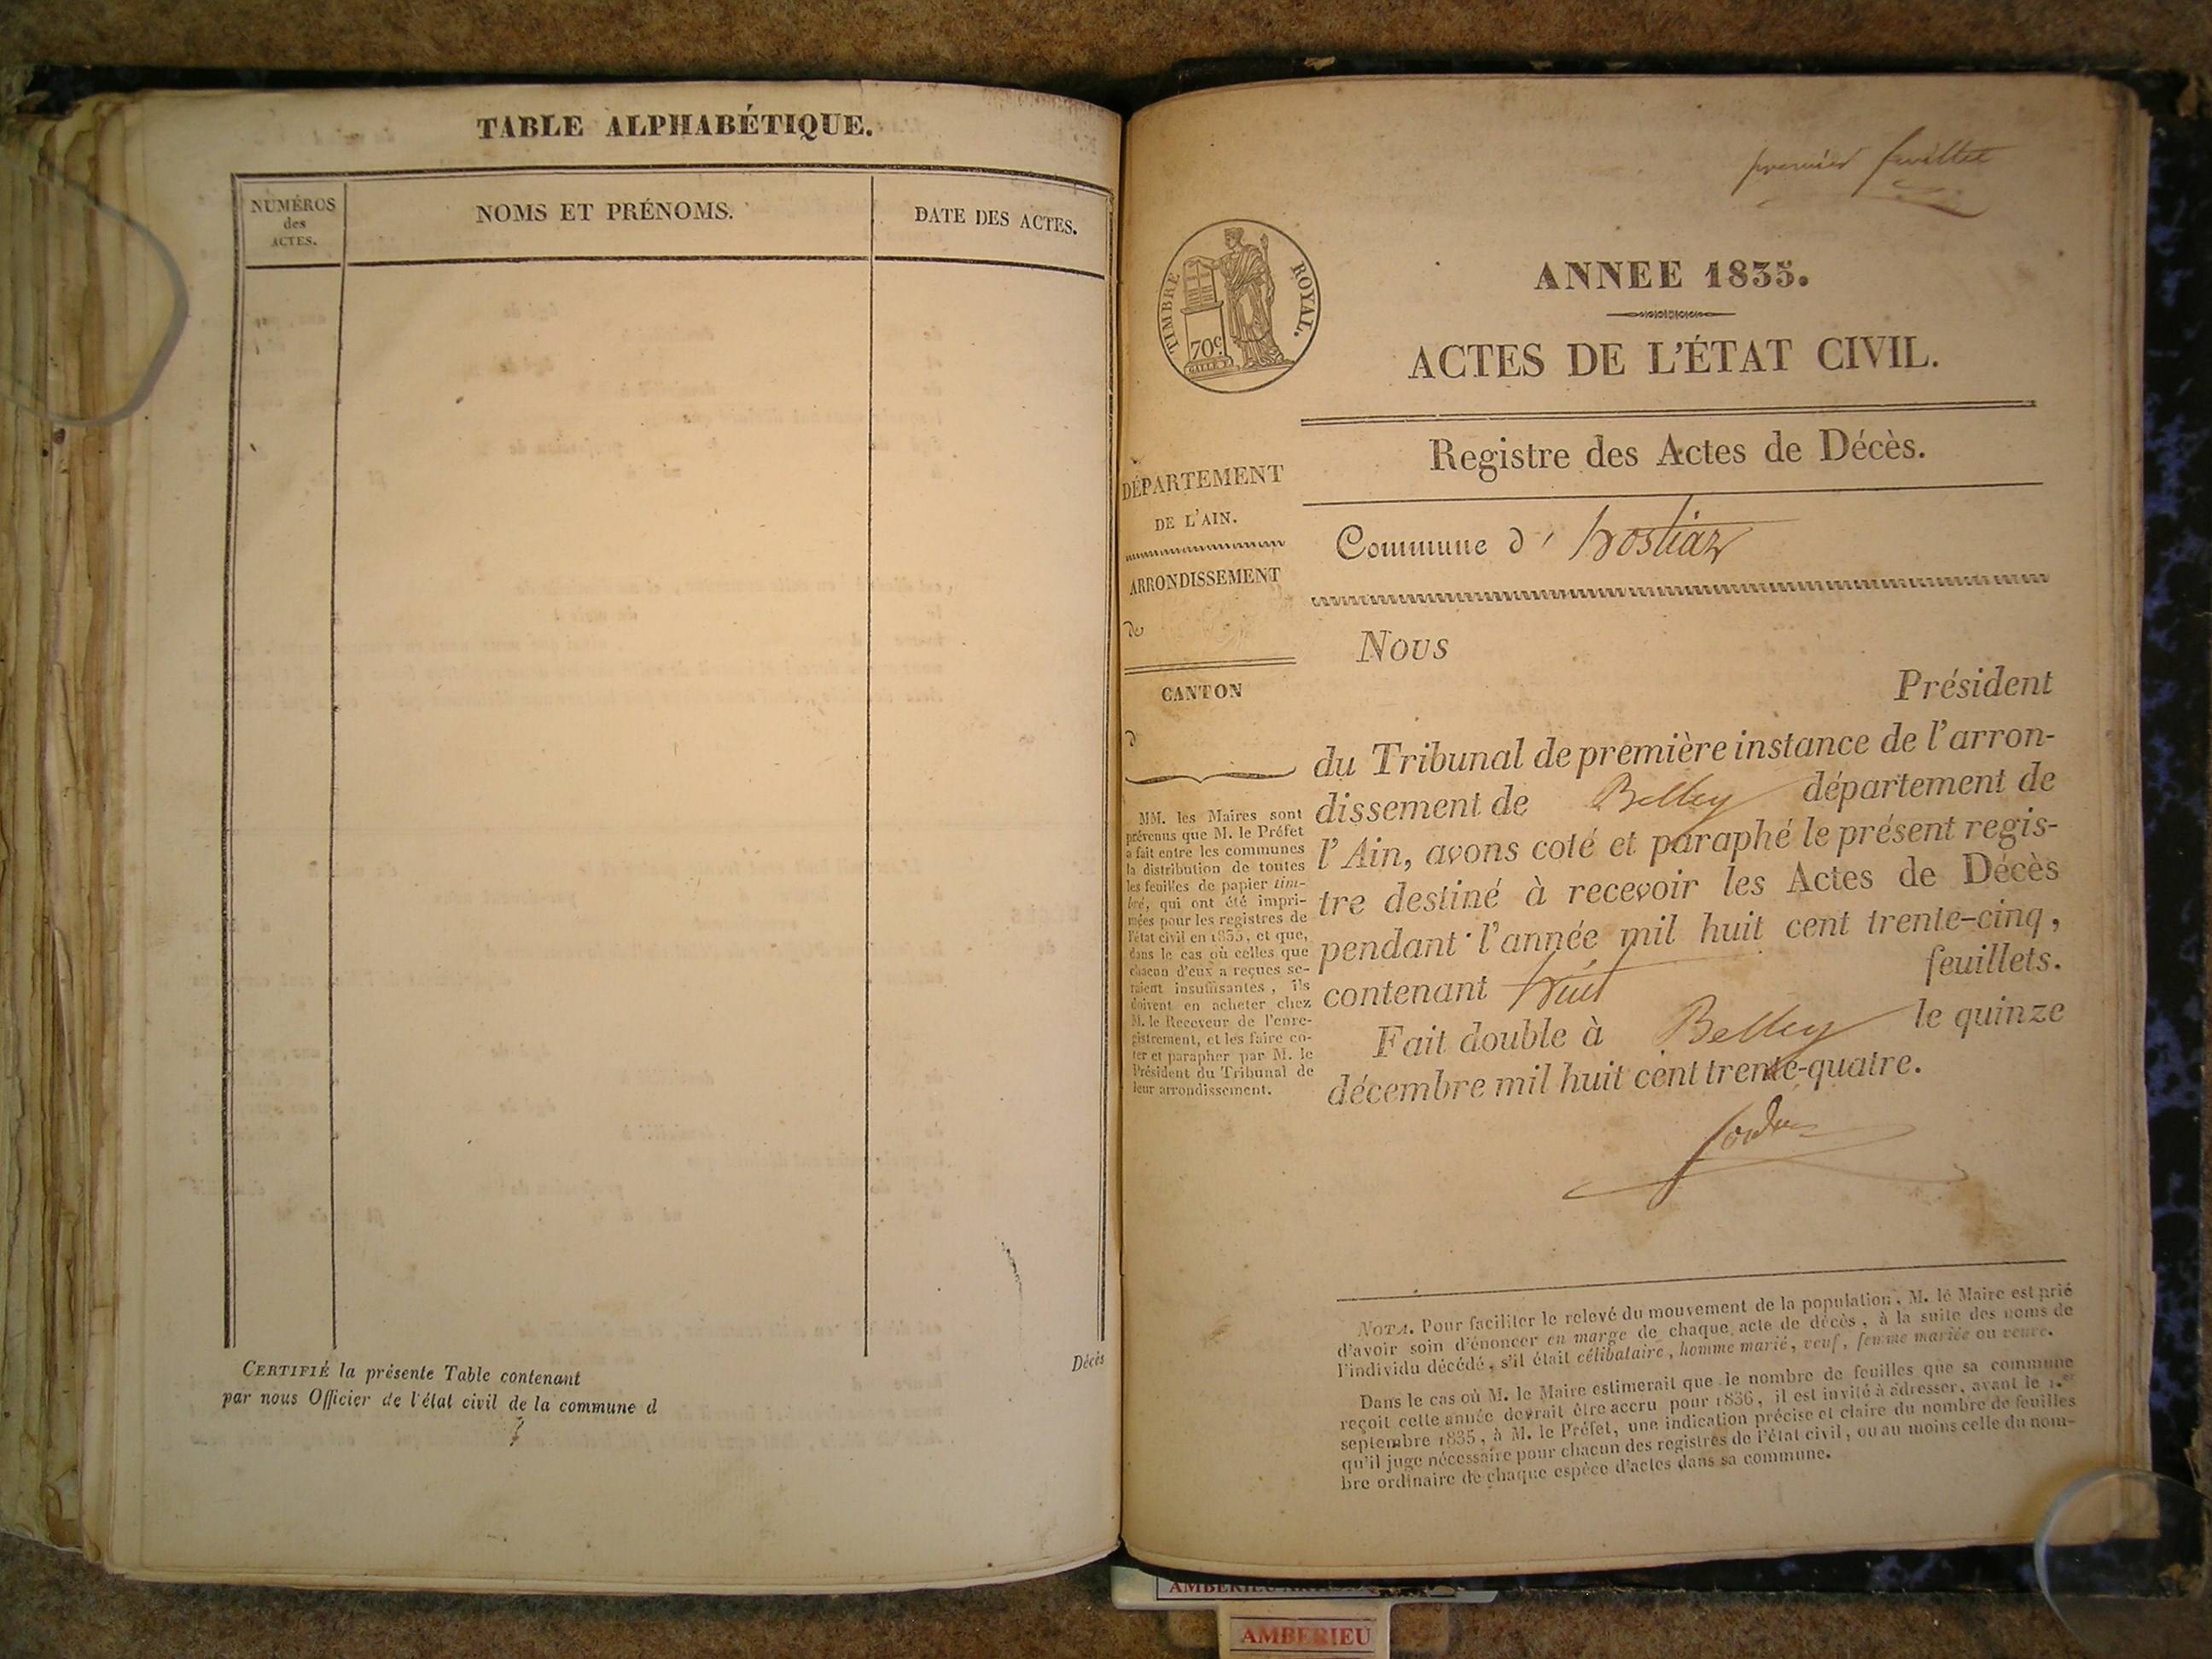 TABLE ALPHABÉTIQUE.
NUMÉROS
des
ACTES.
NOMS ET PRÉNOMS.
DATE DES ACTES.
CERTIFIÉ la présente Table contenant
Décès
par nous Officier de l'état civil de la commune d
premier feuillet
TIMBRE ROYAL.
70c
ANNEE 1835.
ACTES DE L'ÉTAT CIVIL.
Registre des Actes de Décès.
DÉPARTEMENT
DE L'AIN.
ARRONDISSEMENT
de
CANTON
d
MM. les Maires sont
prévenus que M. le Préfet
a fait entre les communes
la distribution de toutes
les feuilles de papier tim-
bré, qui ont été impri-
mées pour les registres de
l'état civil en 1835, et que,
dans le cas où celles que
chacun d'eux a reçues se-
raient insuffisantes, ils
doivent en acheter chez
M. le Receveur de l'enre-
gistrement, et les faire co-
ter et parapher par M. le
Président du Tribunal de
leur arrondissement.
Commune d' hostiaz
Nous
Président
du Tribunal de première instance de l'arron-
dissement de Belley département de
l'Ain, avons coté et paraphé le présent regis-
tre destiné à recevoir les Actes de Décès
pendant l'année mil huit cent trente-cinq,
contenant huit feuillets.
Fait double à Belley le quinze
décembre mil huit cent trente-quatre.
NOTA. Pour faciliter le relevé du mouvement de la population, M. le Maire est prié
d'avoir soin d'énoncer en marge de chaque acte de décès, à la suite des noms de
l'individu décédé, s'il était célibataire, homme marié, veuf, femme mariée ou veuve.
Dans le cas où M. le Maire estimerait que le nombre de feuilles que sa commune
reçoit cette année devrait être accru pour 1836, il est invité à adresser, avant le 1.er
septembre 1835, à M. le Préfet, une indication précise et claire du nombre de feuilles
qu'il juge nécessaire pour chacun des registres de l'état civil, ou au moins celle du nom-
bre ordinaire de chaque espèce d'actes dans sa commune.
AMBERIEU
AMBERIEU